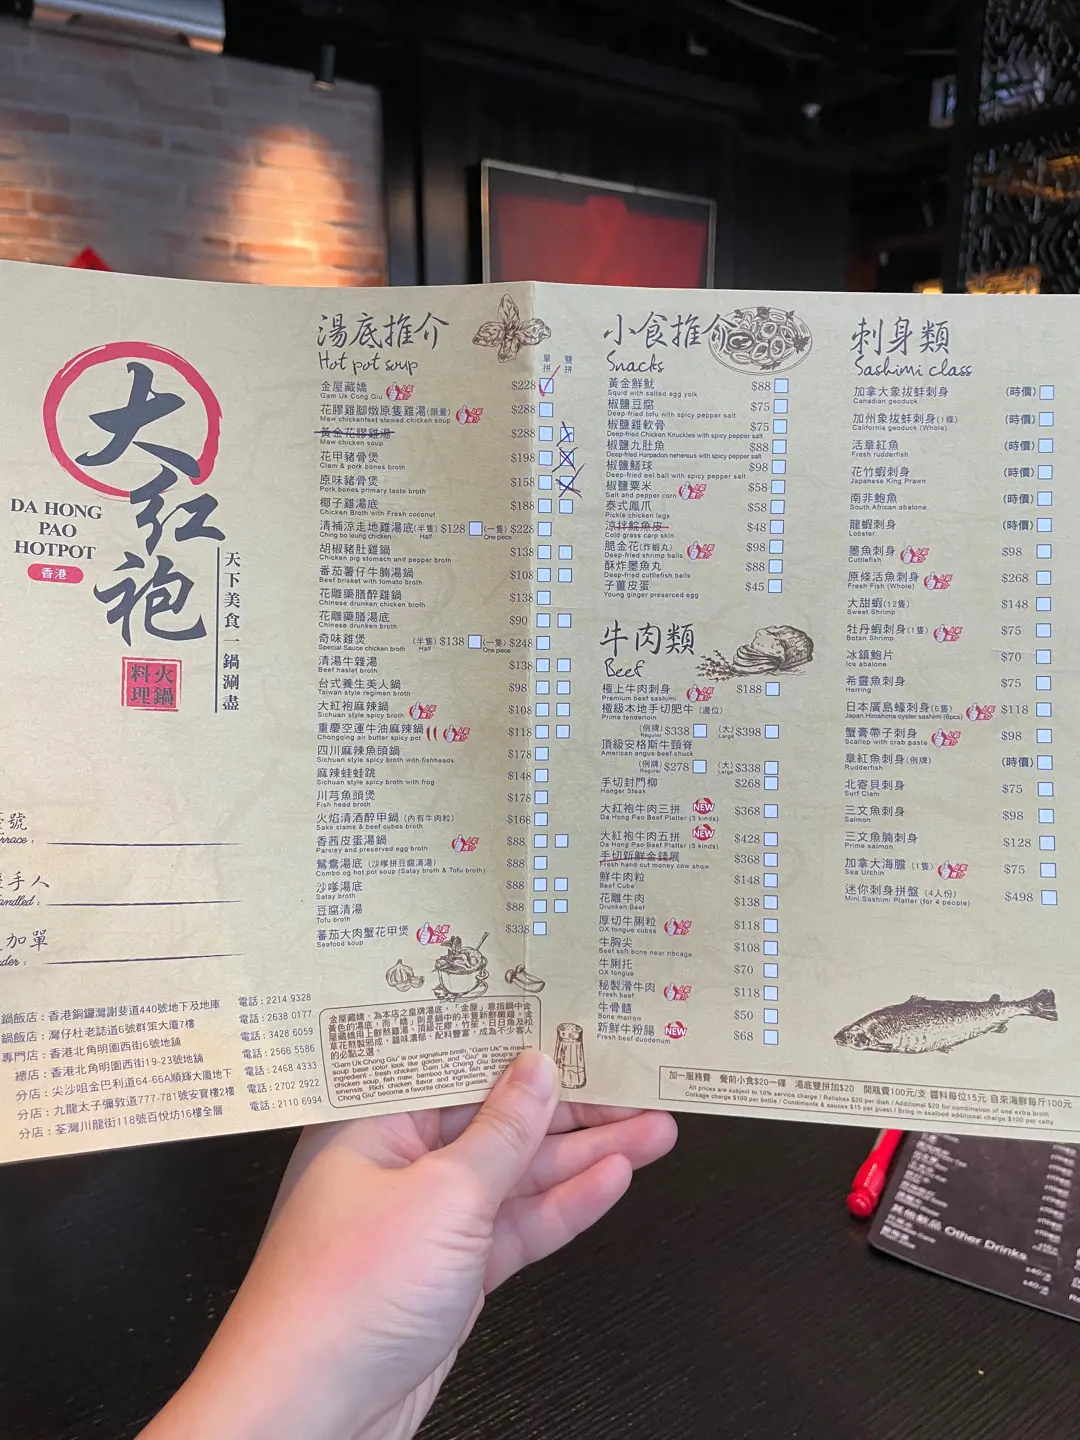 大红袍
DA HONG
PAO
HOTPOT
香港
天下美食一鍋涮盡
火鍋
料理
湯底推介
Hot pot soup
單拼
雙拼
金屋藏嬌 $228
Gam Uk Cong Giu
花膠雞腳燉原隻雞湯(限量) $288
Maw chickenfeet stewed chicken soup
黃金花膠雞湯 $288
Maw chicken soup
花甲豬骨煲 $198
Clam & pork bones broth
原味豬骨煲 $158
Pork bones primary taste broth
椰子雞湯底 $188
Chicken Broth with Fresh coconut
清補涼走地雞湯底(半隻) $128 (一隻) $228
Ching bo leung chicken Half One piece
胡椒豬肚雞鍋 $138
Chicken pig stomach and pepper broth
番茄薯仔牛腩湯鍋 $108
Beef brisket with tomato broth
花雕藥膳醉雞鍋 $138
Chinese drunken chicken broth
花雕藥膳湯底 $90
Chinese drunken broth
奇味雞煲 (半隻) $138 (一隻) $248
Special Sauce chicken broth Half One piece
清湯牛雜湯 $138
Beef haslet broth
台式養生美人鍋 $98
Taiwan style regimen broth
大紅袍麻辣鍋 $108
Sichuan style spicy broth
重慶空運牛油麻辣鍋 $118
Chongqing air butter spicy pot
四川麻辣魚頭鍋 $178
Sichuan style spicy broth with fishheads
麻辣蛙蛙跳 $148
Sichuan style spicy broth with frog
川芎魚頭煲 $178
Fish head broth
火焰清酒醉甲鍋 (內有牛肉粒) $168
Sake clams & beef cubes broth
香茜皮蛋湯鍋 $88
Parsley and preserved egg broth
鴛鴦湯底 (沙嗲拼豆腐清湯) $88
Combo og hot pot soup (Satay broth & Tofu broth)
沙嗲湯底 $88
Satay broth
豆腐清湯 $88
Tofu broth
番茄大肉蟹花甲煲 $338
Seafood soup
小食推介
Snacks
黃金鮮魷 $88
Squid with salted egg yolk
椒鹽豆腐 $75
Deep-fried tofu with spicy pepper salt
椒鹽雞軟骨 $75
Deep-fried Chicken Knuckles with spicy pepper salt
椒鹽九肚魚 $88
Deep-fried Harpadon nehereus with spicy pepper salt
椒鹽鱔球 $98
Deep-fried eel ball with spicy pepper salt
椒鹽粟米 $58
Salt and pepper corn
泰式鳳爪 $58
Pickle chicken legs
涼拌鯇魚皮 $48
Cold grass carp skin
脆金花(炸蝦丸) $98
Deep-fried shrimp balls
酥炸墨魚丸 $88
Deep-fried cuttlefish balls
子薑皮蛋 $45
Young ginger preserced egg
牛肉類
Beef
極上牛肉刺身 $188
Premium beef sashimi
極級本地手切肥牛 (邊位)
Prime tenderloin
(例牌) $338 (大) $398
Regular Large
頂級安格斯牛頸脊
American angus beef chuck
(例牌) $278 (大) $338
Regular Large
手切封門柳 $268
Hanger Steak
大紅袍牛肉三拼 NEW $368
Da Hong Pao Beef Platter (3 kinds)
大紅袍牛肉五拼 NEW $428
Da Hong Pao Beef Platter (5 kinds)
手切新鮮金錢展 $368
Fresh hand cut money cow show
鮮牛肉粒 $148
Beef Cube
花雕牛肉 $138
Drunken Beef
厚切牛脷粒 $118
OX tongue cubes
牛胸尖 $108
Beef soft bone near ribcage
牛脷托 $70
OX tongue
秘製滑牛肉 $118
Fresh beef
牛骨髓 $50
Bone marrow
新鮮牛粉腸 NEW $68
Fresh beef duodenum
刺身類
Sashimi class
加拿大象拔蚌刺身 (時價)
Canadian geoduck
加州象拔蚌刺身(1條) (時價)
California geoduck (Whole)
活章紅魚 (時價)
Fresh rudderfish
花竹蝦刺身 (時價)
Japanese King Prawn
南非鮑魚 (時價)
South African abalone
龍蝦刺身 (時價)
Lobster
墨魚刺身 $98
Cuttlefish
原條活魚刺身 $268
Fresh Fish (Whole)
大甜蝦(12隻) $148
Sweet Shrimp
牡丹蝦刺身(1隻) $75
Botan Shrimp
冰鎮鮑片 $70
Ice abalone
希靈魚刺身 $75
Herring
日本廣島蠔刺身(6隻) $118
Japan Hiroshima oyster sashimi (6pcs)
蟹膏帶子刺身 $98
Scallop with crab paste
章紅魚刺身(例牌) (時價)
Rudderfish
北寄貝刺身 $75
Surf Clam
三文魚刺身 $98
Salmon
三文魚腩刺身 $128
Prime salmon
加拿大海膽 (1隻) $75
Sea Urchin
迷你刺身拼盤 (4人份) $498
Mini Sashimi Platter (for 4 people)
號
手人
加單
鍋飯店：香港銅鑼灣謝斐道440號地下及地庫 電話：2214 9328
鍋飯店：灣仔杜老誌道6號群策大廈7樓 電話：2638 0177
專門店：香港北角明園西街6號地舖 電話：3428 6059
總店：香港北角明園西街19-23號地舖 電話：2566 5586
分店：尖沙咀金巴利道64-66A順輝大廈地下 電話：2468 4333
分店：九龍太子彌敦道777-781號安寶樓2樓 電話：2702 2922
分店：荃灣川龍街118號百悅坊16樓全層 電話：2110 6994
加一服務費 餐前小食$20一碟 湯底雙拼加$20 開瓶費100元/支 醬料每位15元 自來海鮮每斤100元
All prices are subject to 10% service charge / Relishes $20 per dish / Additional $20 for combination of one extra broth
Corkage charge $100 per bottle / Condiments & sauces $15 per guest / Bring in seafood additional charge $100 per catty
其他飲品 Other Drinks